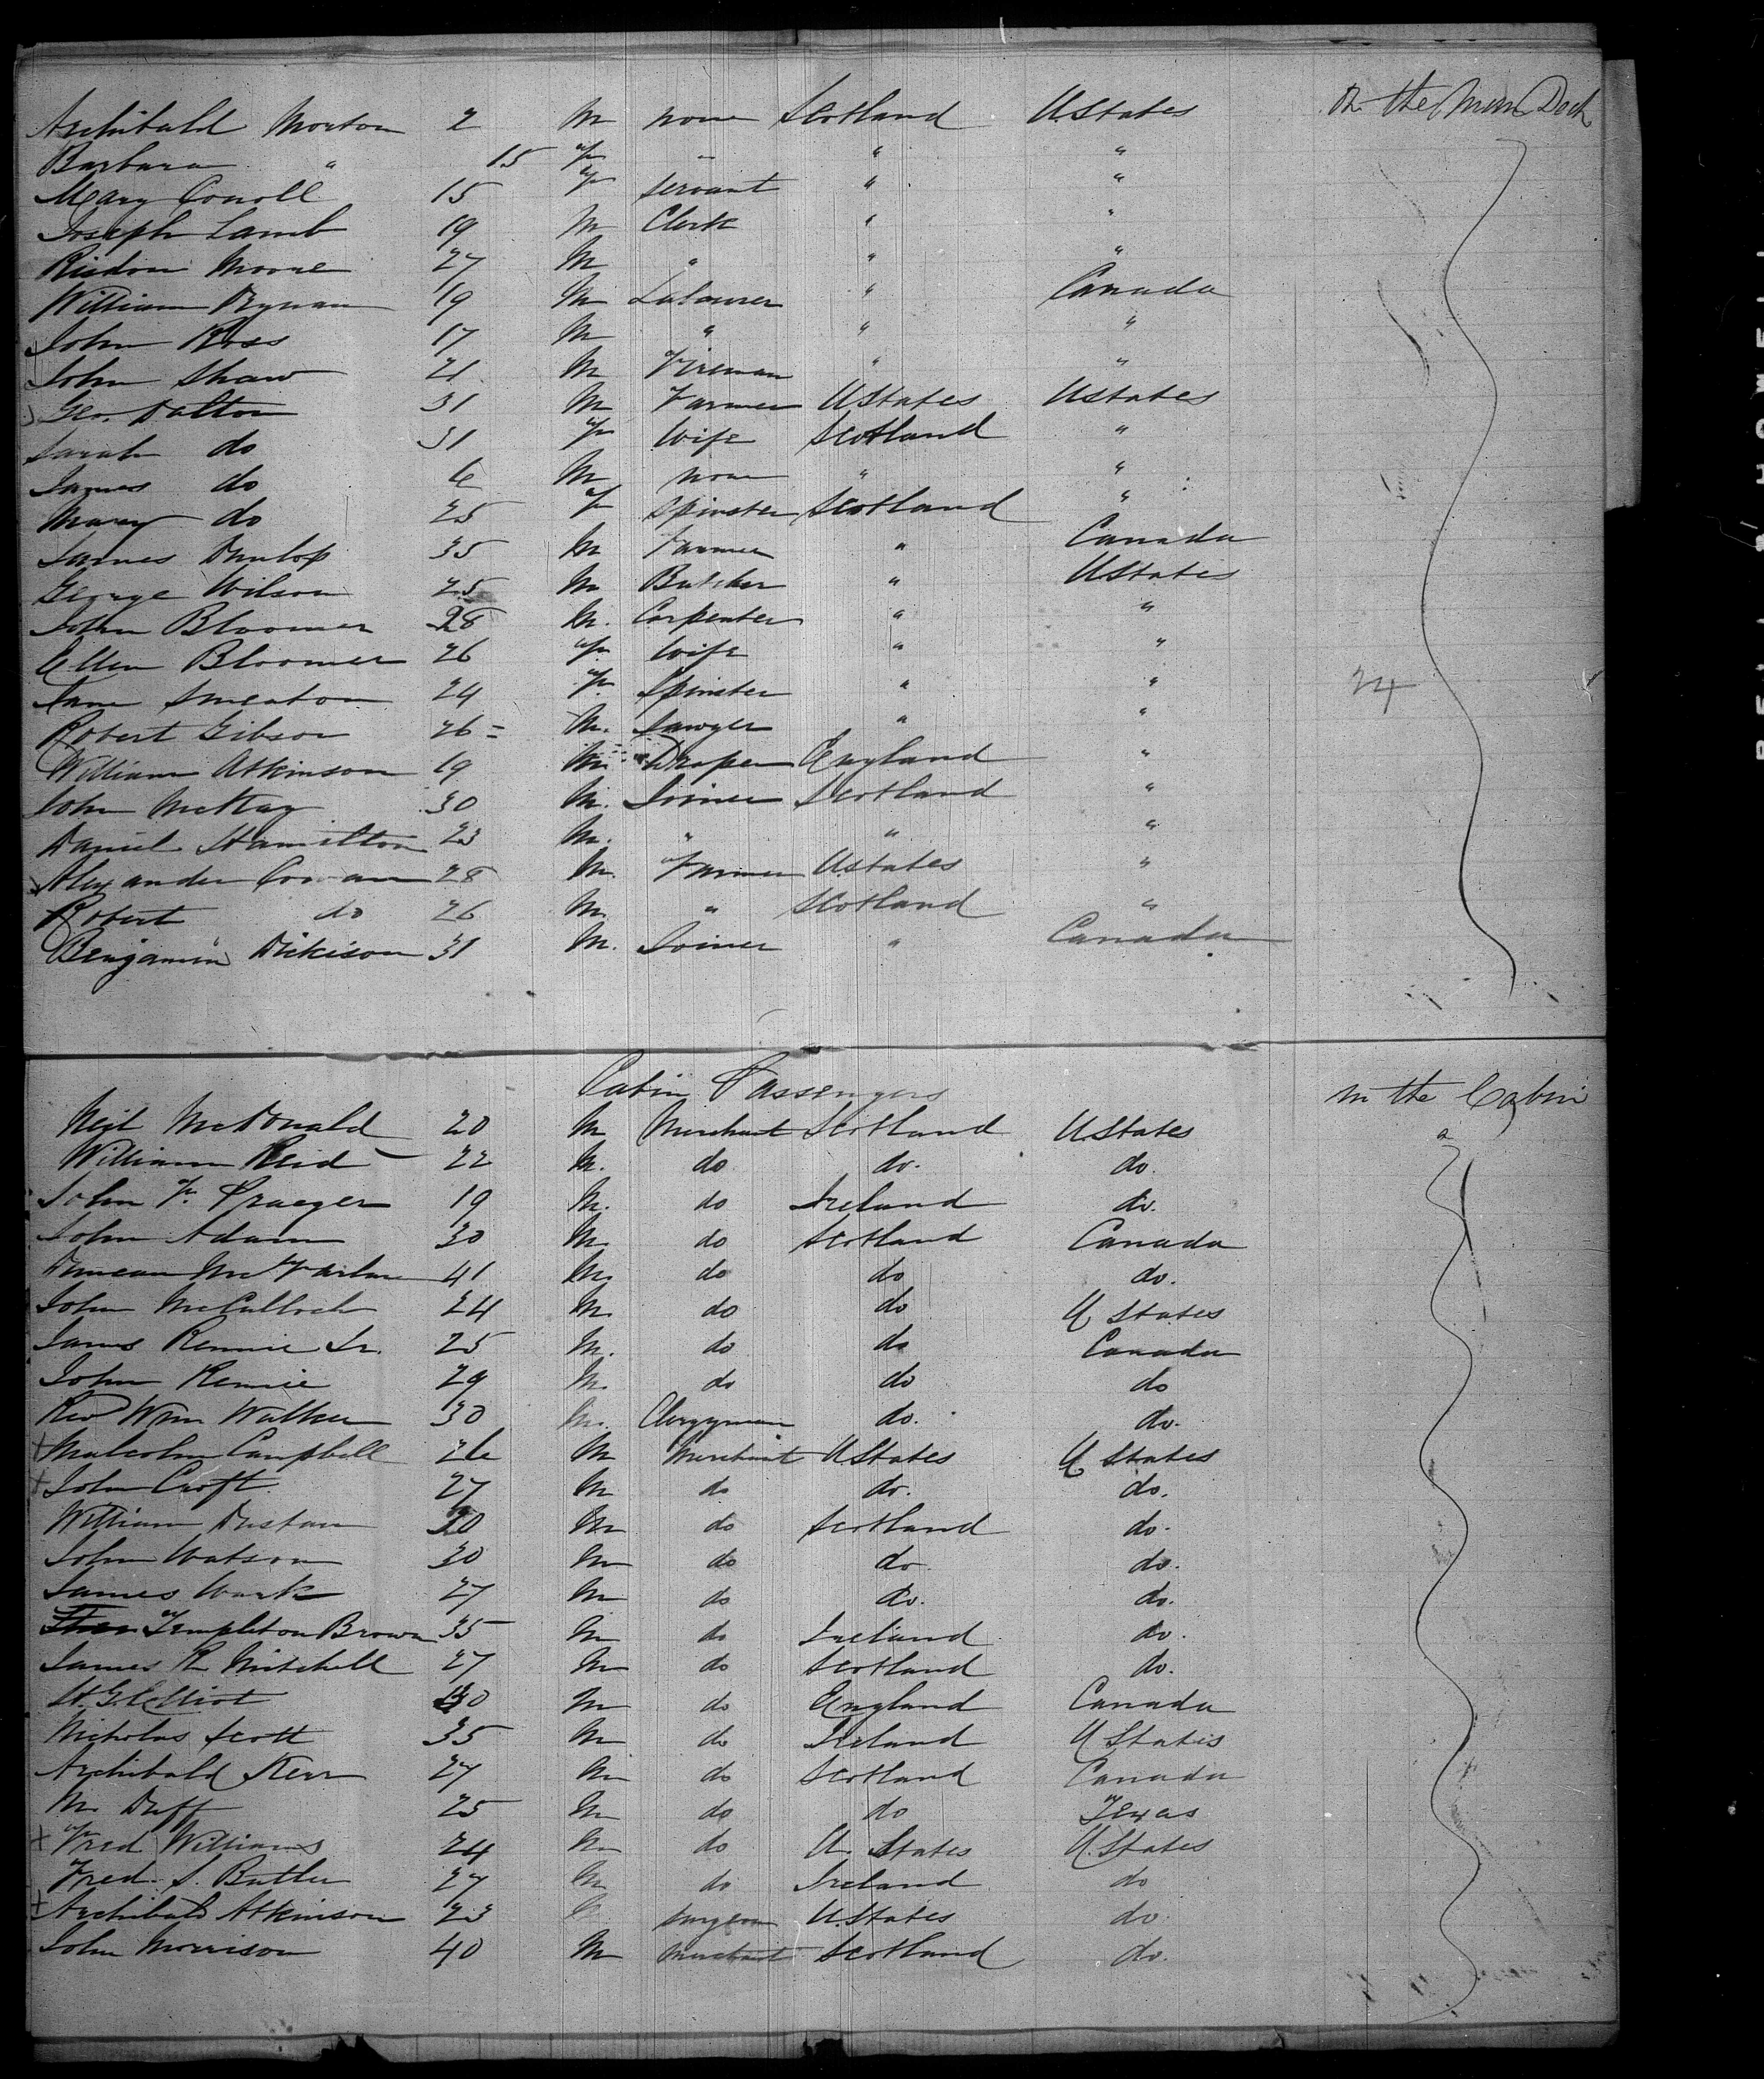 On the Main Deck
Archibald Morton 2 M none Scotland UStates
Barbara " 15 F " " "
Mary Conoll 15 F servant " "
Joseph Lamb 19 M Clerk " "
Risdon Moore 27 M " " "
William 19 M Labourer " Canada
John Ross 17 M " " "
John Shaw 21 M Fireman " "
Geo. Dalton 31 M Farmer UStates UStates
Sarah do 31 F Wife Scotland "
James do 6 M none " "
Mary do 25 F Spinster Scotland "
James Dunlop 35 M Farmer " Canada
George Wilson 25 M Butcher " UStates
John Bloomer 28 M. Carpenter " "
Ellen Bloomer 26 F. Wife " "
Jane Smeaton 24 F. Spinster " " 24
Robert Gibson 26 = M. Sawyer " "
William Atkinson 19 M Draper England "
John McKay 30 M. Joiner Scotland "
Daniel Hamilton 23 M. " " "
Alexander Cowan 28 M. Farmer UStates "
Robert do 26 M. " Scotland "
Benjamin Dickison 31 M. Joiner " Canada
Cabin Passengers
In the Cabin
Neil McDonald 20 M Merchant Scotland UStates
William Reid 22 M. do do. do.
John F. Praeger 19 M. do Ireland do.
John Adam 30 M. do Scotland Canada
Duncan McFarlane 41 M. do do do.
John McCulloch 24 M. do do U States
James Rennie Jr. 25 M. do do Canada
John Rennie 29 M. do do do
Rev Wm Walker 30 M. Clergyman do. do.
+ Malcolm Campbell 26 M Merchant UStates U States
+ John Croft 27 M do do. do.
William Dustan 30 M do Scotland do.
John Watson 30 M do do. do.
James Wark 27 M do do. do.
Templeton Brown 35 M do Ireland do.
James R Mitchell 27 M do Scotland do.
H. G. Elliot 30 M do England Canada
Nicholas Scott 35 M do Ireland U States
Archibald Kerr 27 M do Scotland Canada
M. Duff 25 M do do Texas
+ Fred Williams 24 M do U. States U. States
Fred. S. Butler 27 M do Ireland do
+ Archibald Atkinson 23 surgeon U.States do
John Morrison 40 M Merchant Scotland do.